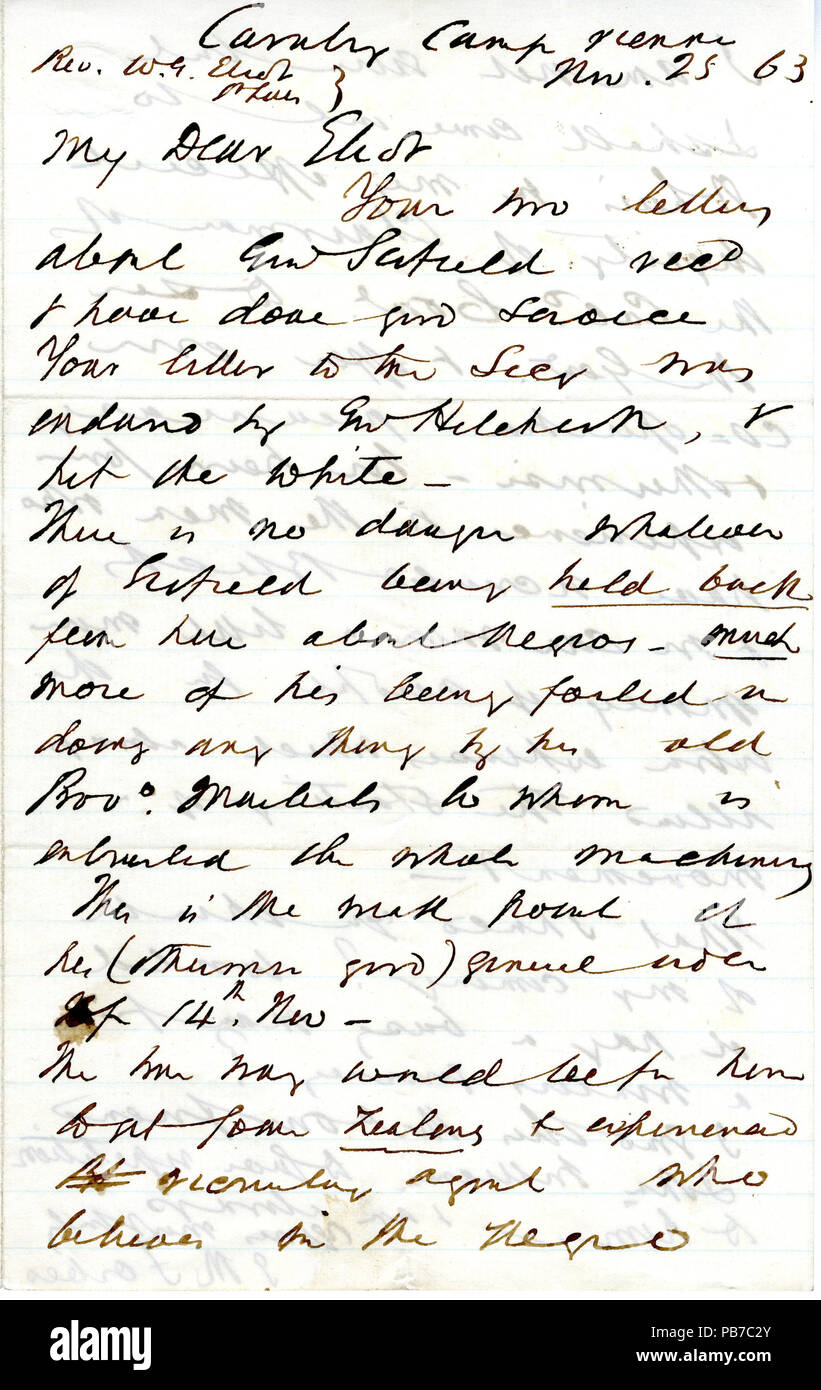 Cavalry Camp Vienna
Rev. W.G. Eliot } Nov. 25 63
St Louis
My Dear Eliot
Your two letters
about Genl Scofield recd
& have done good service
Your letter to the Secy was
endorsed by Genl Hitchcock, &
hit the white —
There is no danger whatever
of Scofield being held back
from here about Negros - much
more of his being foiled in
doing any thing by his old
Provo. Marshals to whom is
entrusted the whole machinery
This is the weak point of
his (otherwise good) general order
of 14th. Nov —
The true way would be for him
to get some zealous & experienced
recruiting agent who
believes in the Negro
J M Forbes
alamy
Image ID: PB7C2Y
www.alamy.com